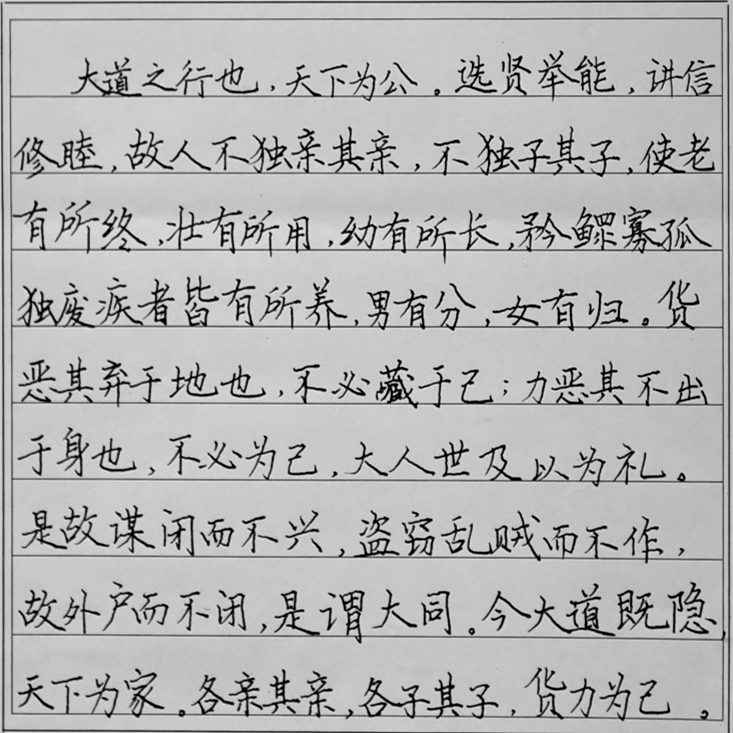 大道之行也，天下为公。选贤举能，讲信
修睦，故人不独亲其亲，不独子其子，使老
有所终，壮有所用，幼有所长，矜鳏寡孤
独废疾者皆有所养，男有分，女有归。货
恶其弃于地也，不必藏于己；力恶其不出
于身也，不必为己，大人世及以为礼。
是故谋闭而不兴，盗窃乱贼而不作，
故外户而不闭，是谓大同。今大道既隐，
天下为家。各亲其亲，各子其子，货力为己。